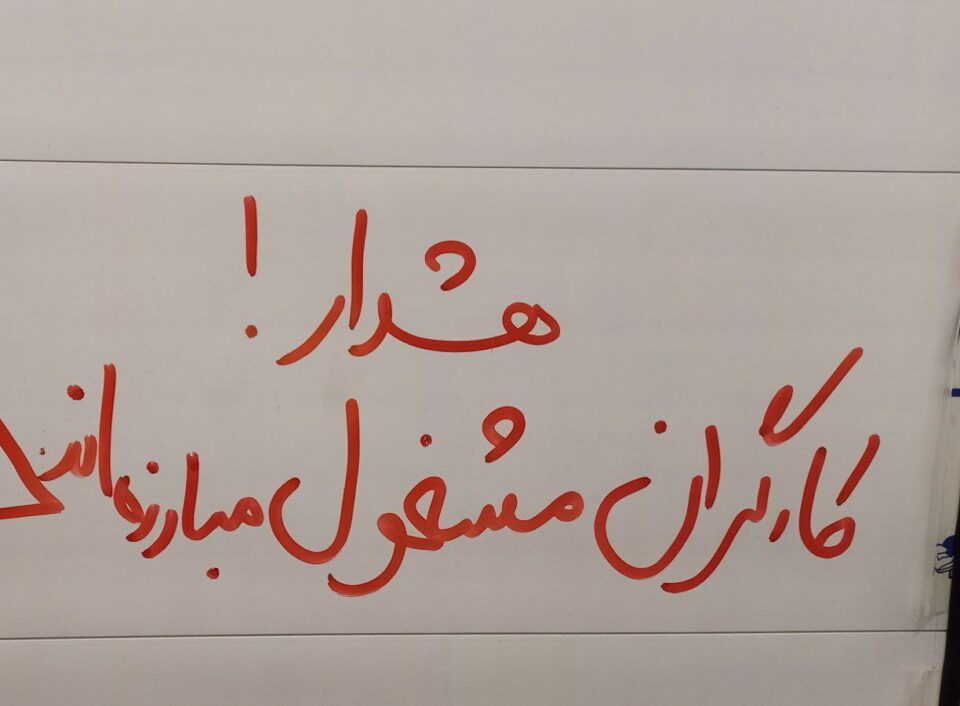 هشدار!
کارگران مشغول مبارزه‌اند